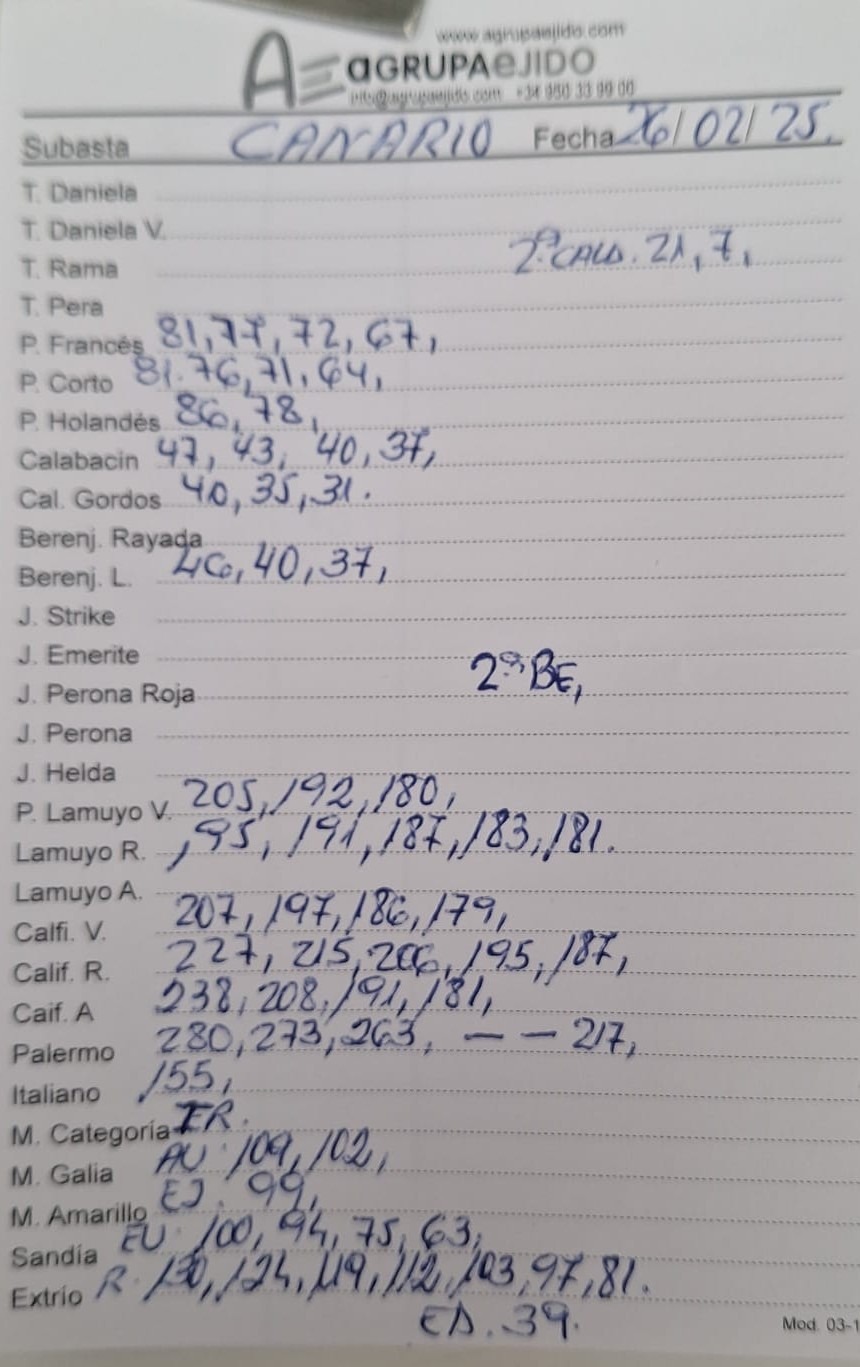 www.agrupaejido.com
AE aGRUPAeJIDO
info@agrupaejido.com +34 950 33 99 00
Subasta CANARIO Fecha 26/02/25.
T. Daniela
T. Daniela V.
T. Rama 2ª CALD. 21, 7,
T. Pera
P. Francés 81, 77, 72, 67,
P. Corto 81. 76, 71, 64,
P. Holandés 86, 78,
Calabacin 47, 43, 40, 37,
Cal. Gordos 40, 35, 31.
Berenj. Rayada
Berenj. L. 46, 40, 37,
J. Strike
J. Emerite
J. Perona Roja 2ª BE,
J. Perona
J. Helda
P. Lamuyo V. 205, 192, 180,
Lamuyo R. 195, 191, 187, 183, 181.
Lamuyo A.
Calfi. V. 207, 197, 186, 179,
Calif. R. 227, 215, 206, 195, 187,
Caif. A 238, 208, 191, 181,
Palermo 280, 273, 263, — — 217,
Italiano 155,
M. Categoría FR.
M. Galia AU. 109, 102,
M. Amarillo EJ. 99,
Sandía EU. 100, 94, 75, 63,
Extrío R. 130, 124, 119, 112, 103, 97, 81.
39.
Mod. 03-1